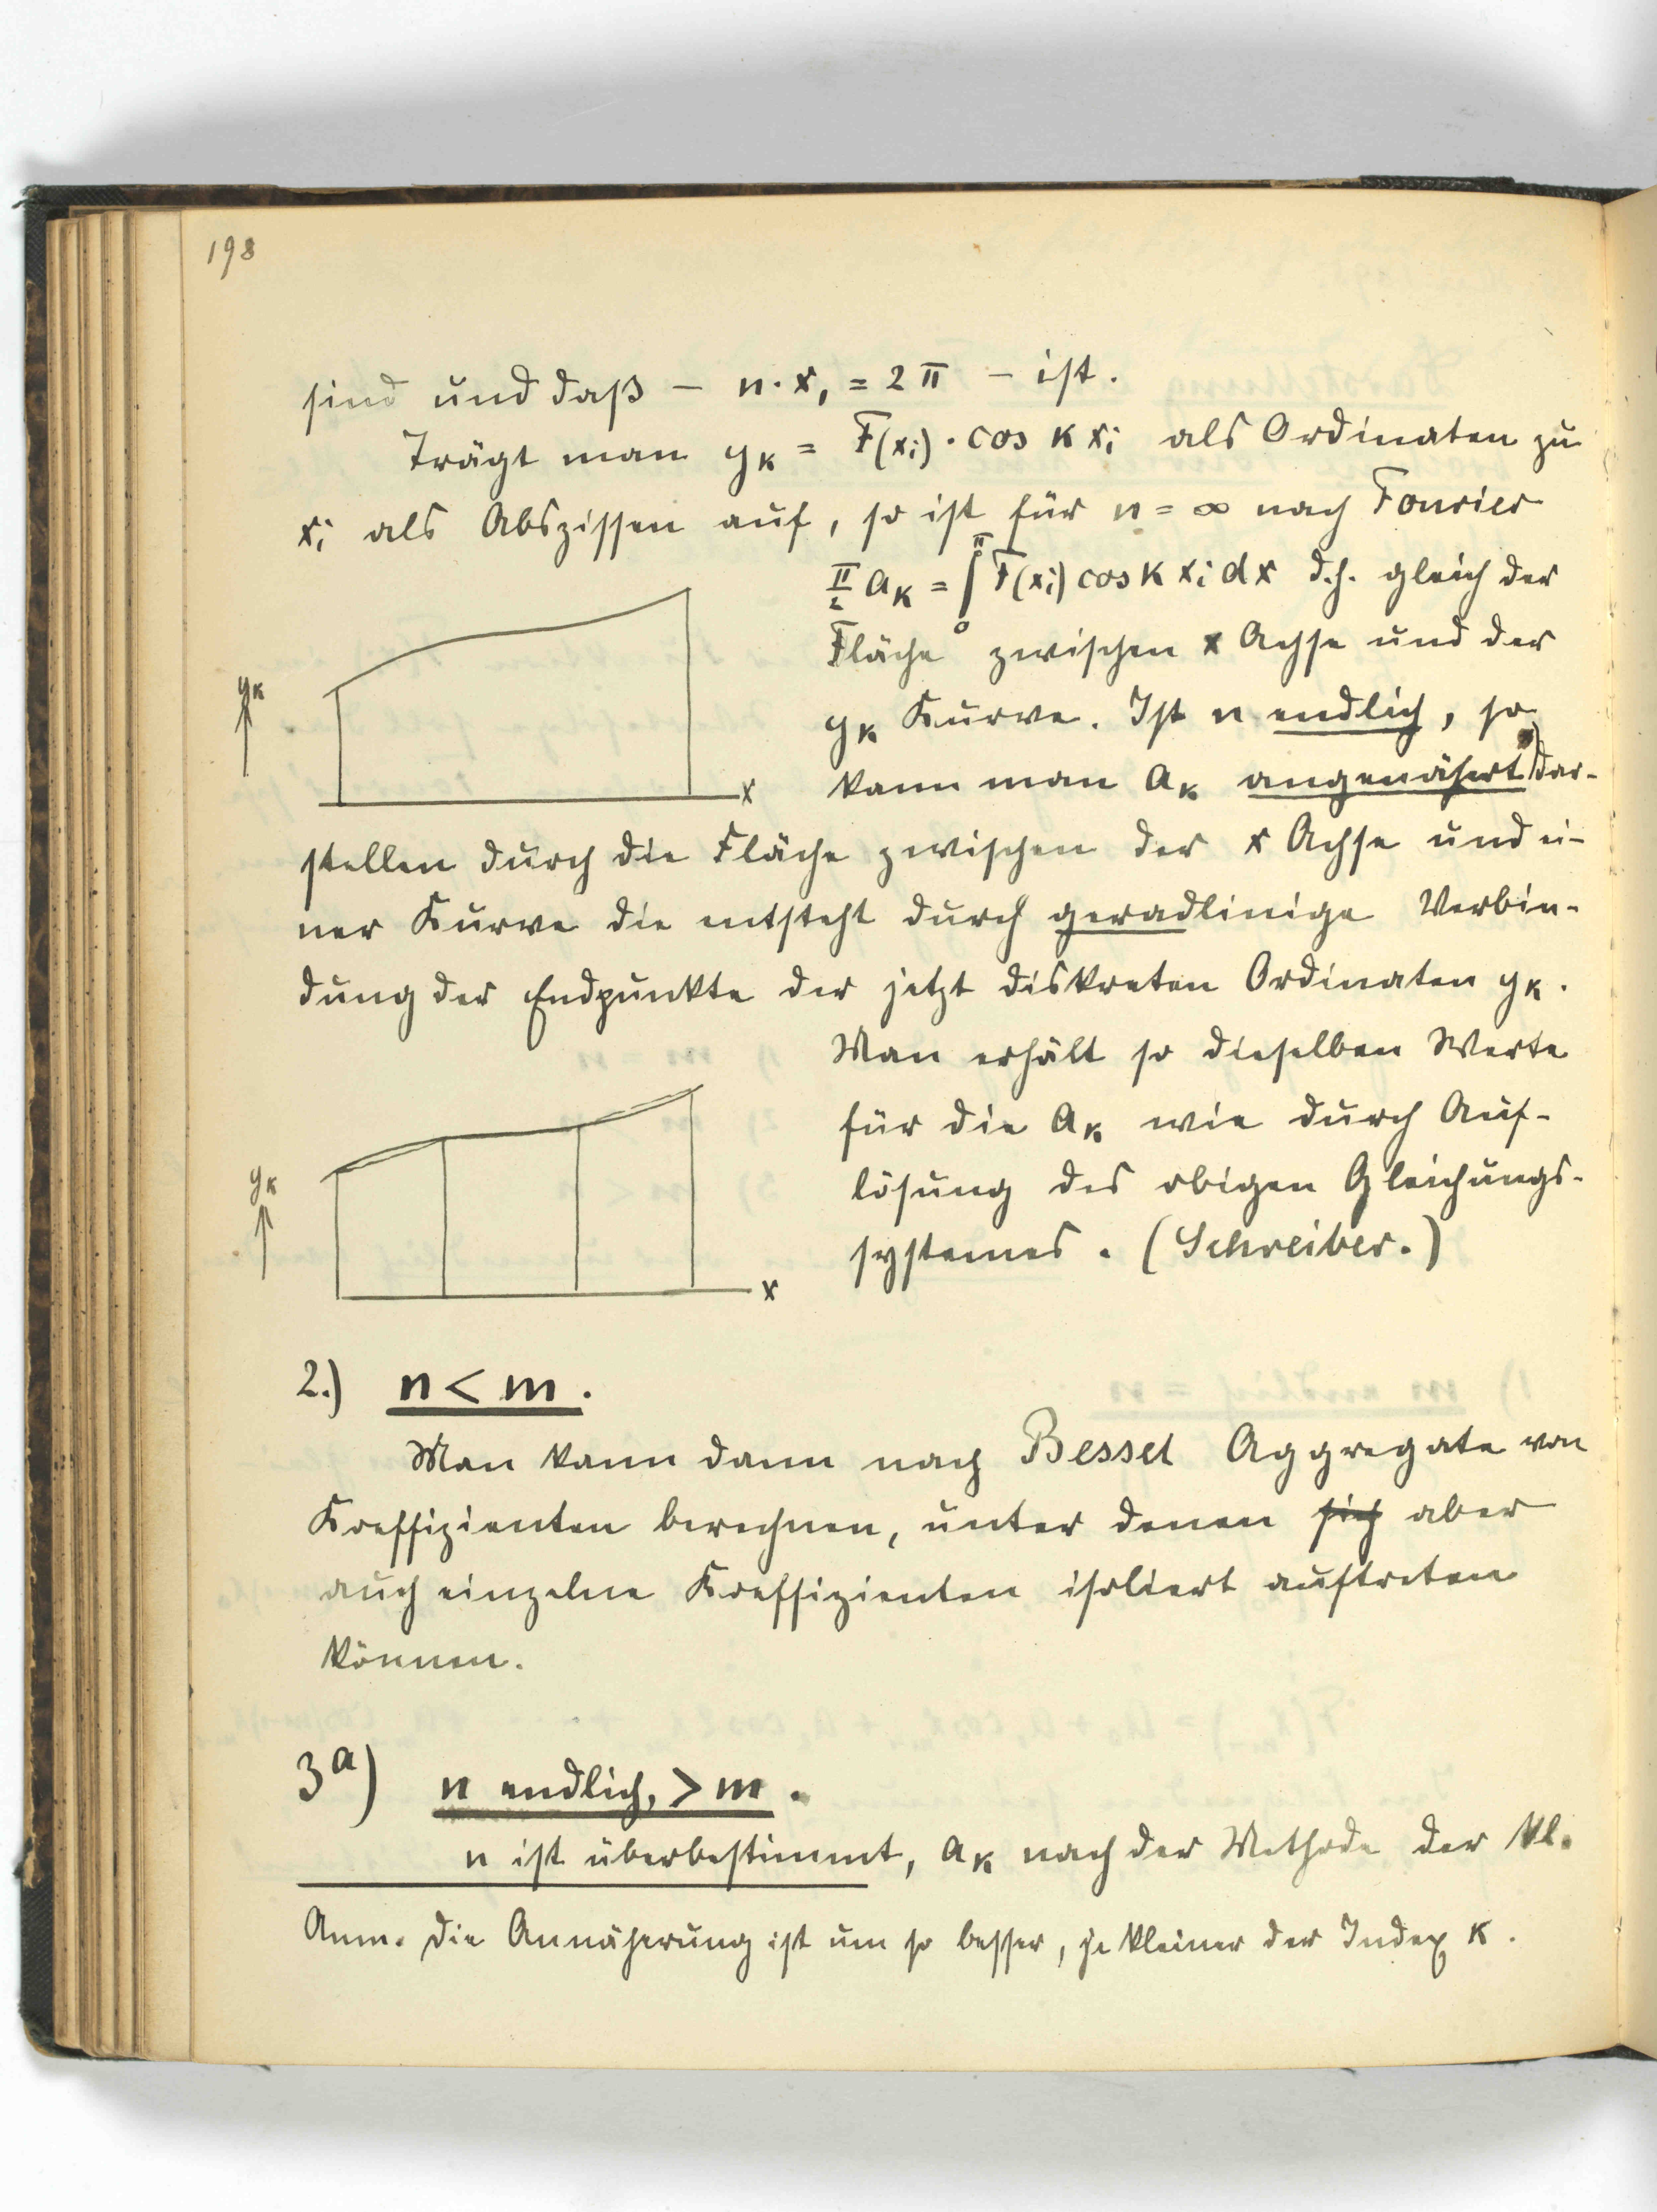 198
sind und daß – n·x₁ = 2π – ist.
Trägt man yₖ = F(xᵢ)·cos k xᵢ als Ordinaten zu
xᵢ als Abszissen auf, so ist für n = ∞ nach Fourier
π/2 aₖ = ∫₀^π F(xᵢ) cos k xᵢ dx d.h. gleich der
Fläche zwischen x Achse und der
yₖ Kurve. Ist n endlich, so
kann man aₖ angenähert dar-
stellen durch die Fläche zwischen der x Achse und ei-
ner Kurve die entsteht durch geradlinige Verbin-
dung der Endpunkte der jetzt diskreten Ordinaten yₖ.
yₖ
x
Man erhält so dieselben Werte
für die aₖ wie durch Auf-
lösung des obigen Gleichungs-
systemes. (Schreiber.)
yₖ
x
2.) n < m.
Man kann dann nach Bessel Aggregate von
Koeffizienten berechnen, unter denen sich aber
auch einzelne Koeffizienten isoliert auftreten
können.
3a) n endlich, > m.
n ist überbestimmt, aₖ nach der Methode der kl.
Anm. Die Annäherung ist um so besser, je kleiner der Index k.